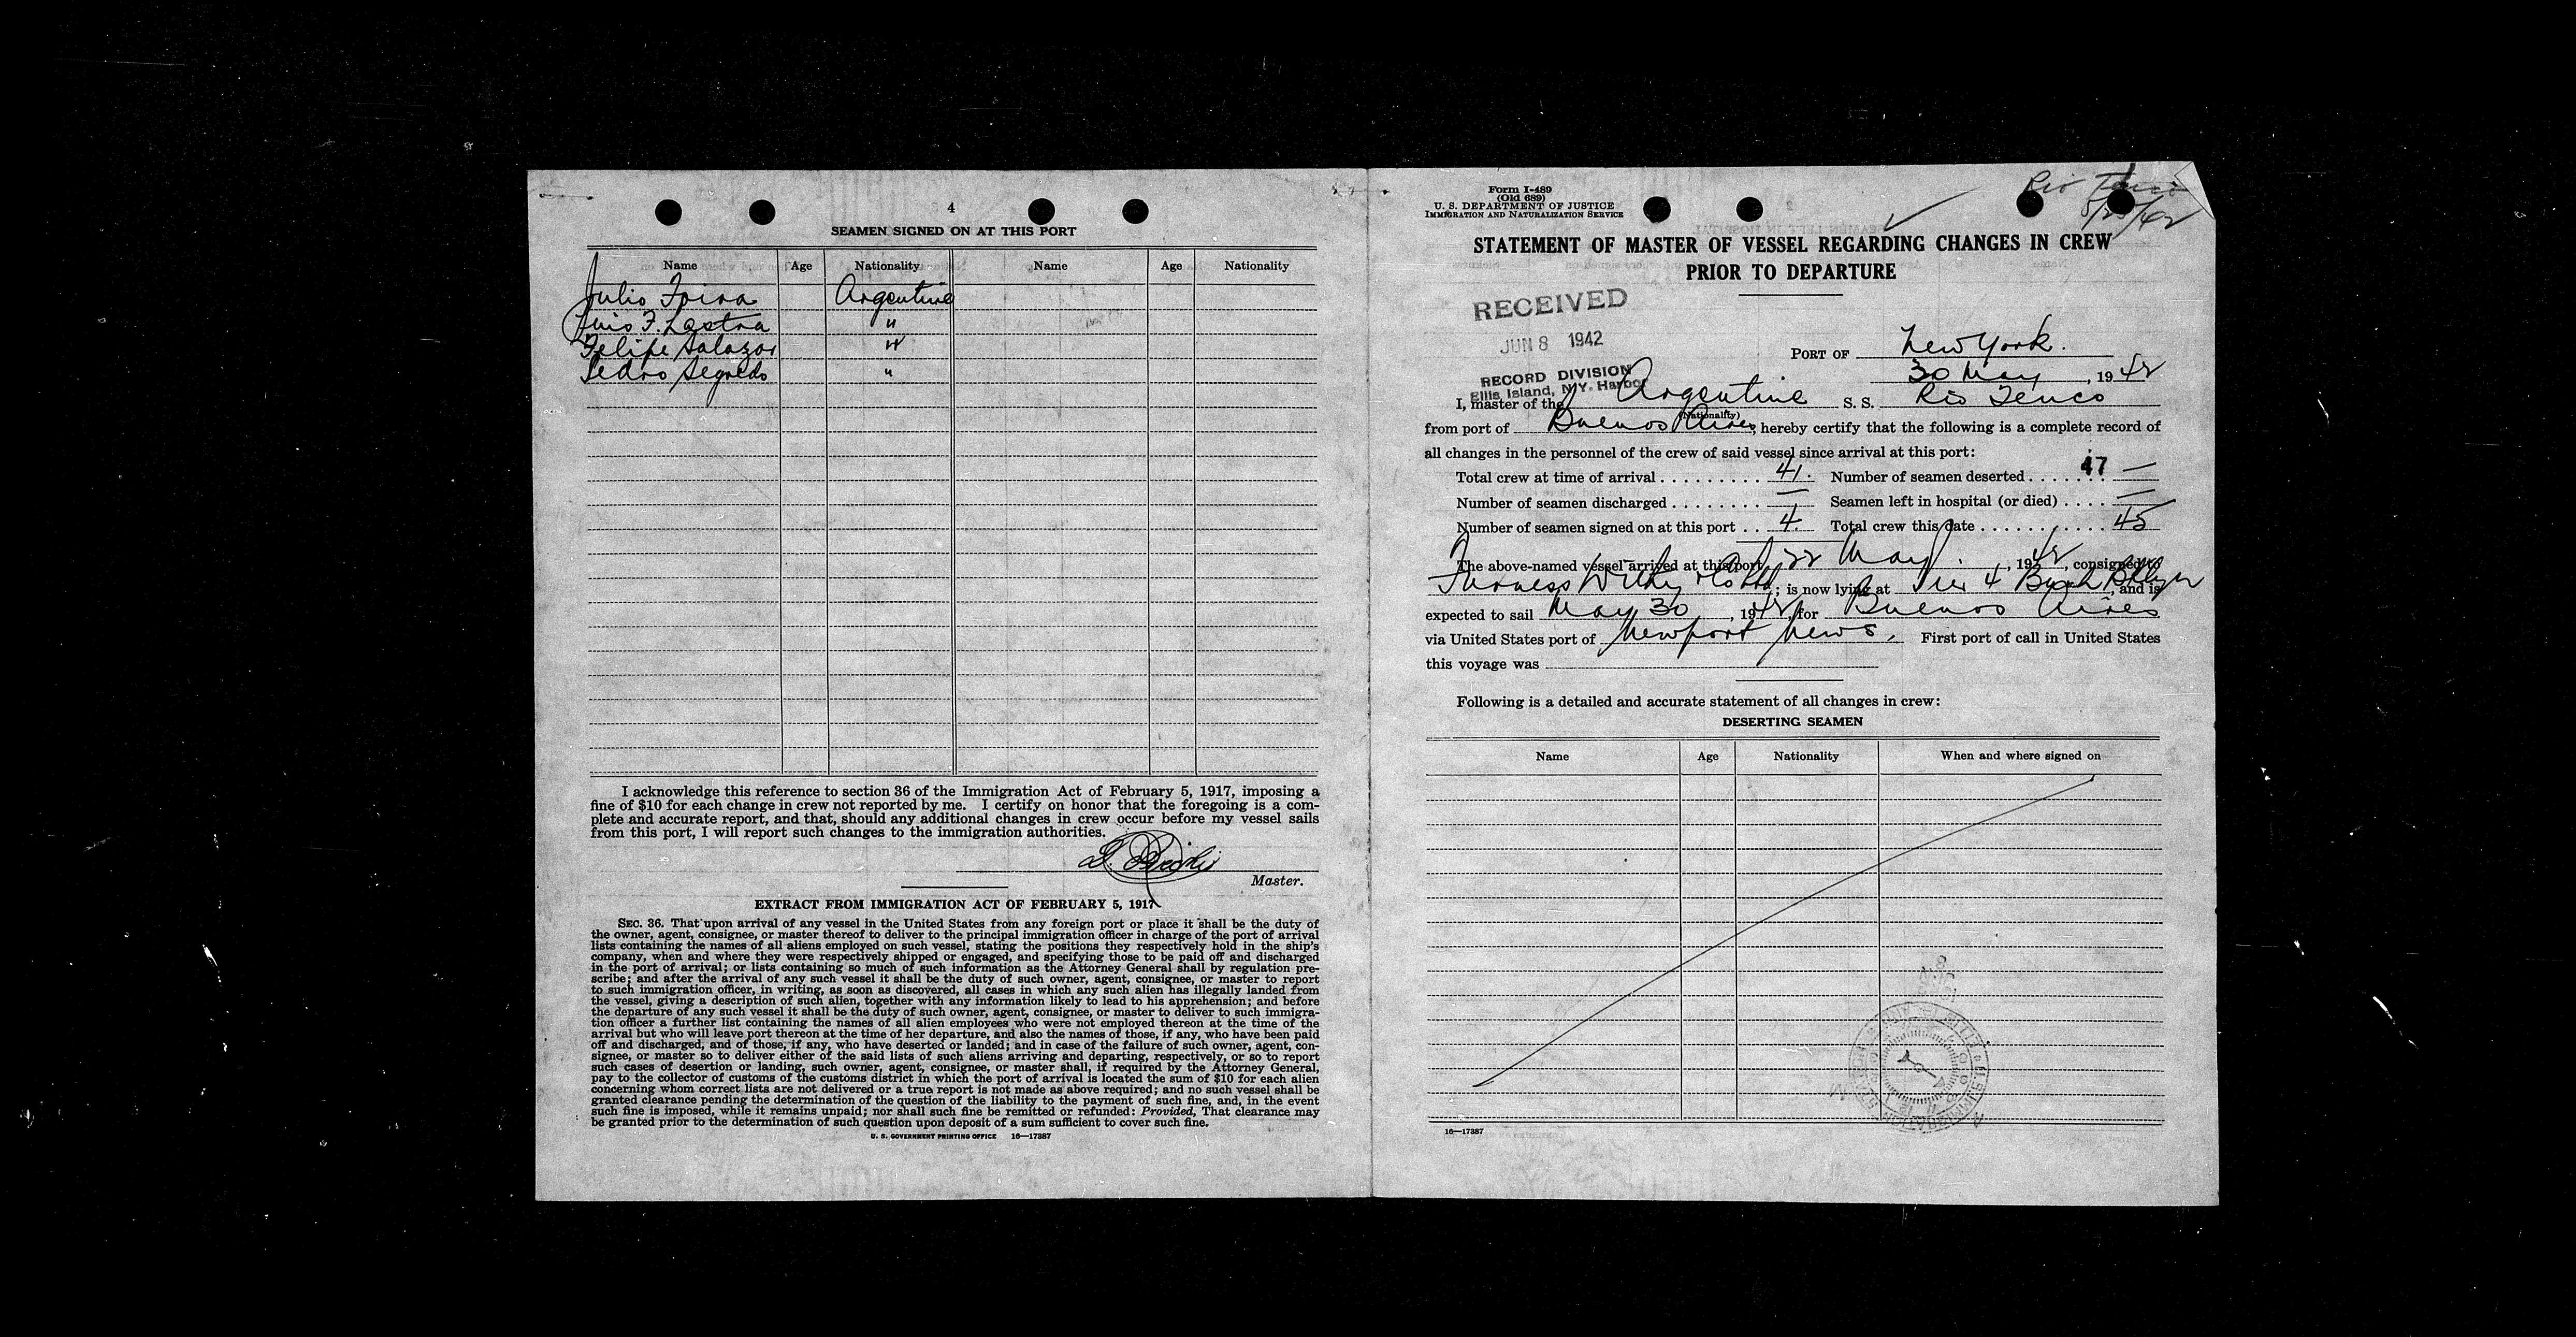 4
SEAMEN SIGNED ON AT THIS PORT
Name Age Nationality Name Age Nationality
Julio Argentine
Luis F. Lastra "
Felipe Salazar "
Pedro Segredo "
I acknowledge this reference to section 36 of the Immigration Act of February 5, 1917, imposing a
fine of $10 for each change in crew not reported by me. I certify on honor that the foregoing is a com-
plete and accurate report, and that, should any additional changes in crew occur before my vessel sails
from this port, I will report such changes to the immigration authorities.
Master.
EXTRACT FROM IMMIGRATION ACT OF FEBRUARY 5, 1917
SEC. 36. That upon arrival of any vessel in the United States from any foreign port or place it shall be the duty of
the owner, agent, consignee, or master thereof to deliver to the principal immigration officer in charge of the port of arrival
lists containing the names of all aliens employed on such vessel, stating the positions they respectively hold in the ship's
company, when and where they were respectively shipped or engaged, and specifying those to be paid off and discharged
in the port of arrival; or lists containing so much of such information as the Attorney General shall by regulation pre-
scribe; and after the arrival of any such vessel it shall be the duty of such owner, agent, consignee, or master to report
to such immigration officer, in writing, as soon as discovered, all cases in which any such alien has illegally landed from
the vessel, giving a description of such alien, together with any information likely to lead to his apprehension; and before
the departure of any such vessel it shall be the duty of such owner, agent, consignee, or master to deliver to such immigra-
tion officer a further list containing the names of all alien employees who were not employed thereon at the time of the
arrival but who will leave port thereon at the time of her departure, and also the names of those, if any, who have been paid
off and discharged, and of those, if any, who have deserted or landed; and in case of the failure of such owner, agent, con-
signee, or master so to deliver either of the said lists of such aliens arriving and departing, respectively, or so to report
such cases of desertion or landing, such owner, agent, consignee, or master shall, if required by the Attorney General,
pay to the collector of customs of the customs district in which the port of arrival is located the sum of $10 for each alien
concerning whom correct lists are not delivered or a true report is not made as above required; and no such vessel shall be
granted clearance pending the determination of the question of the liability to the payment of such fine, and, in the event
such fine is imposed, while it remains unpaid; nor shall such fine be remitted or refunded: Provided, That clearance may
be granted prior to the determination of such question upon deposit of a sum sufficient to cover such fine.
U. S. GOVERNMENT PRINTING OFFICE 16—17387
Form I-489
(Old 689)
U. S. DEPARTMENT OF JUSTICE
IMMIGRATION AND NATURALIZATION SERVICE
Rio
STATEMENT OF MASTER OF VESSEL REGARDING CHANGES IN CREW
PRIOR TO DEPARTURE
RECEIVED
JUN 8 1942
RECORD DIVISION
Ellis Island, N.Y. Harbor
PORT OF New York.
30 May, 1942
I, master of the Argentine S. S. Rio Teuco
(Nationality)
from port of Buenos Aires, hereby certify that the following is a complete record of
all changes in the personnel of the crew of said vessel since arrival at this port:
Total crew at time of arrival 41. Number of seamen deserted 47 —
Number of seamen discharged — Seamen left in hospital (or died) —
Number of seamen signed on at this port 4. Total crew this date 45
The above-named vessel arrived at this port 22 May, 1942, consigned to
Furness Withy & Co Ltd; is now lying at Pier 4 Bush, and is
expected to sail May 30, 1942, for Buenos Aires
via United States port of Newport News. First port of call in United States
this voyage was
Following is a detailed and accurate statement of all changes in crew:
DESERTING SEAMEN
Name Age Nationality When and where signed on
16—17387